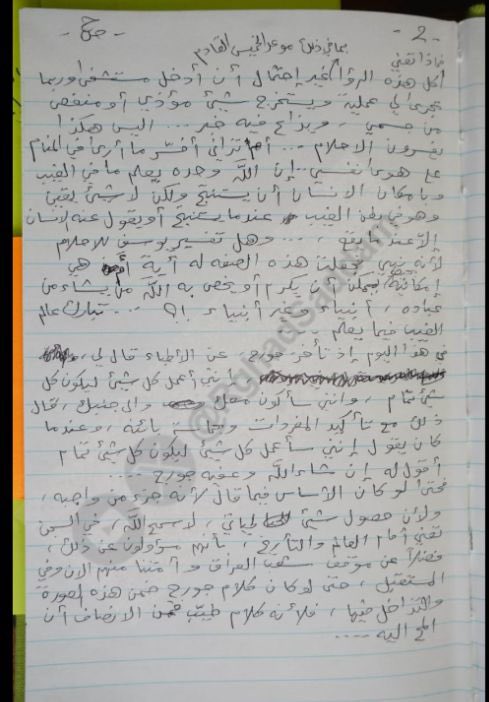 - 2 -
بما في ذلك موعد الخميس القادم
ماذا تعني
كل هذه الرؤا غير إحتمال أن أدخل مستشفى أو ربما
تجرى لي عملية ويستخرج شيئ مؤذي أو منغص
من جسمي ، ويزاح فيه خير ... اليس هكذا
يفسرون الاحلام ... أم تراني أفسّر ما أرى في المنام
على هوى نفسي .. إن اللّه وحده يعلم ما في الغيب
وبإمكان الانسان أن يستنتج ولكن لا شيئ يقين
وهو في بطن الغيب عندما يستنتج أو يقول عنه الإنسان
إلا عندما يقع ، ... وهل تفسير يوسف للاحلام
لأنه نبي فجعلت هذه الصفه له أية أم هي
إمكانية يمكن أن يكرم أو يخص به اللّه من يشاء من
عباده ، أنبياء وغير أنبياء ؟! ... تبارك عالم
الغيب فيما يعلم ...
في هذا اليوم إذ تأخر جورج ، عن الأطباء قال لي ،
إنني أعمل كل شيئ ليكون كل
شيئ تمام ، وانني سأكون معك والى جنبك ، قال
ذلك مع تأكيد المفردات بأنه ، وعندما
كان يقول إنني سأعمل كل شيئ ليكون كل شيئ تمام
أقول له إن شاء اللّه وعفيه جورج ...
فحتى لو كان الأساس فيما قال لأنه جزء من واجبه ،
ولأن حصول شيئ لحياتي ، لا سمح اللّه ، في السجن
تعني أمام العالم والتأريخ ، بأنهم مسؤولون عن ذلك ،
فضلاً عن موقف شعب العراق وأمتنا منهم الان وفي
المستقبل ، حتى لو كان كلام جورج ضمن هذه الصورة
والتداخل فيها ، فلأنه كلام طيّب فمن الانصاف أن
اليه ....
@RghadSaddam